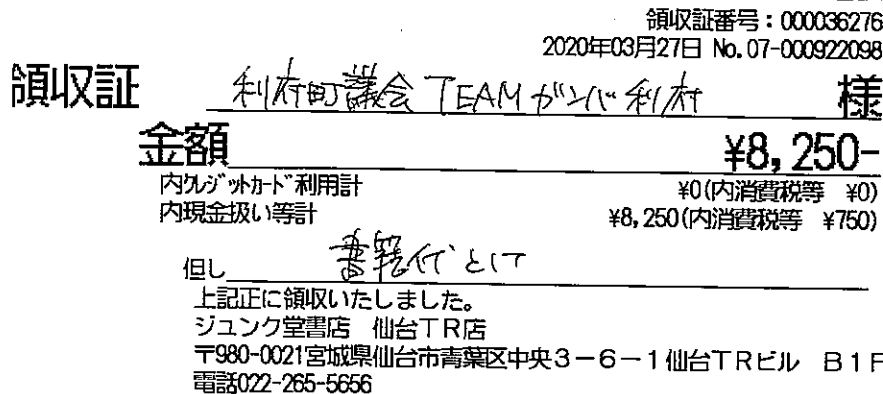 領収証番号：000036276
2020年03月27日 No.07-000922098
領収証 利府町議会 TEAMガンバ利府 様
金額 ¥8,250-
内クレジットカード利用計 ¥0(内消費税等 ¥0)
内現金扱い等計 ¥8,250(内消費税等 ¥750)
但し 書籍代として
上記正に領収いたしました。
ジュンク堂書店 仙台TR店
〒980-0021宮城県仙台市青葉区中央3-6-1仙台TRビル B1F
電話022-265-5656